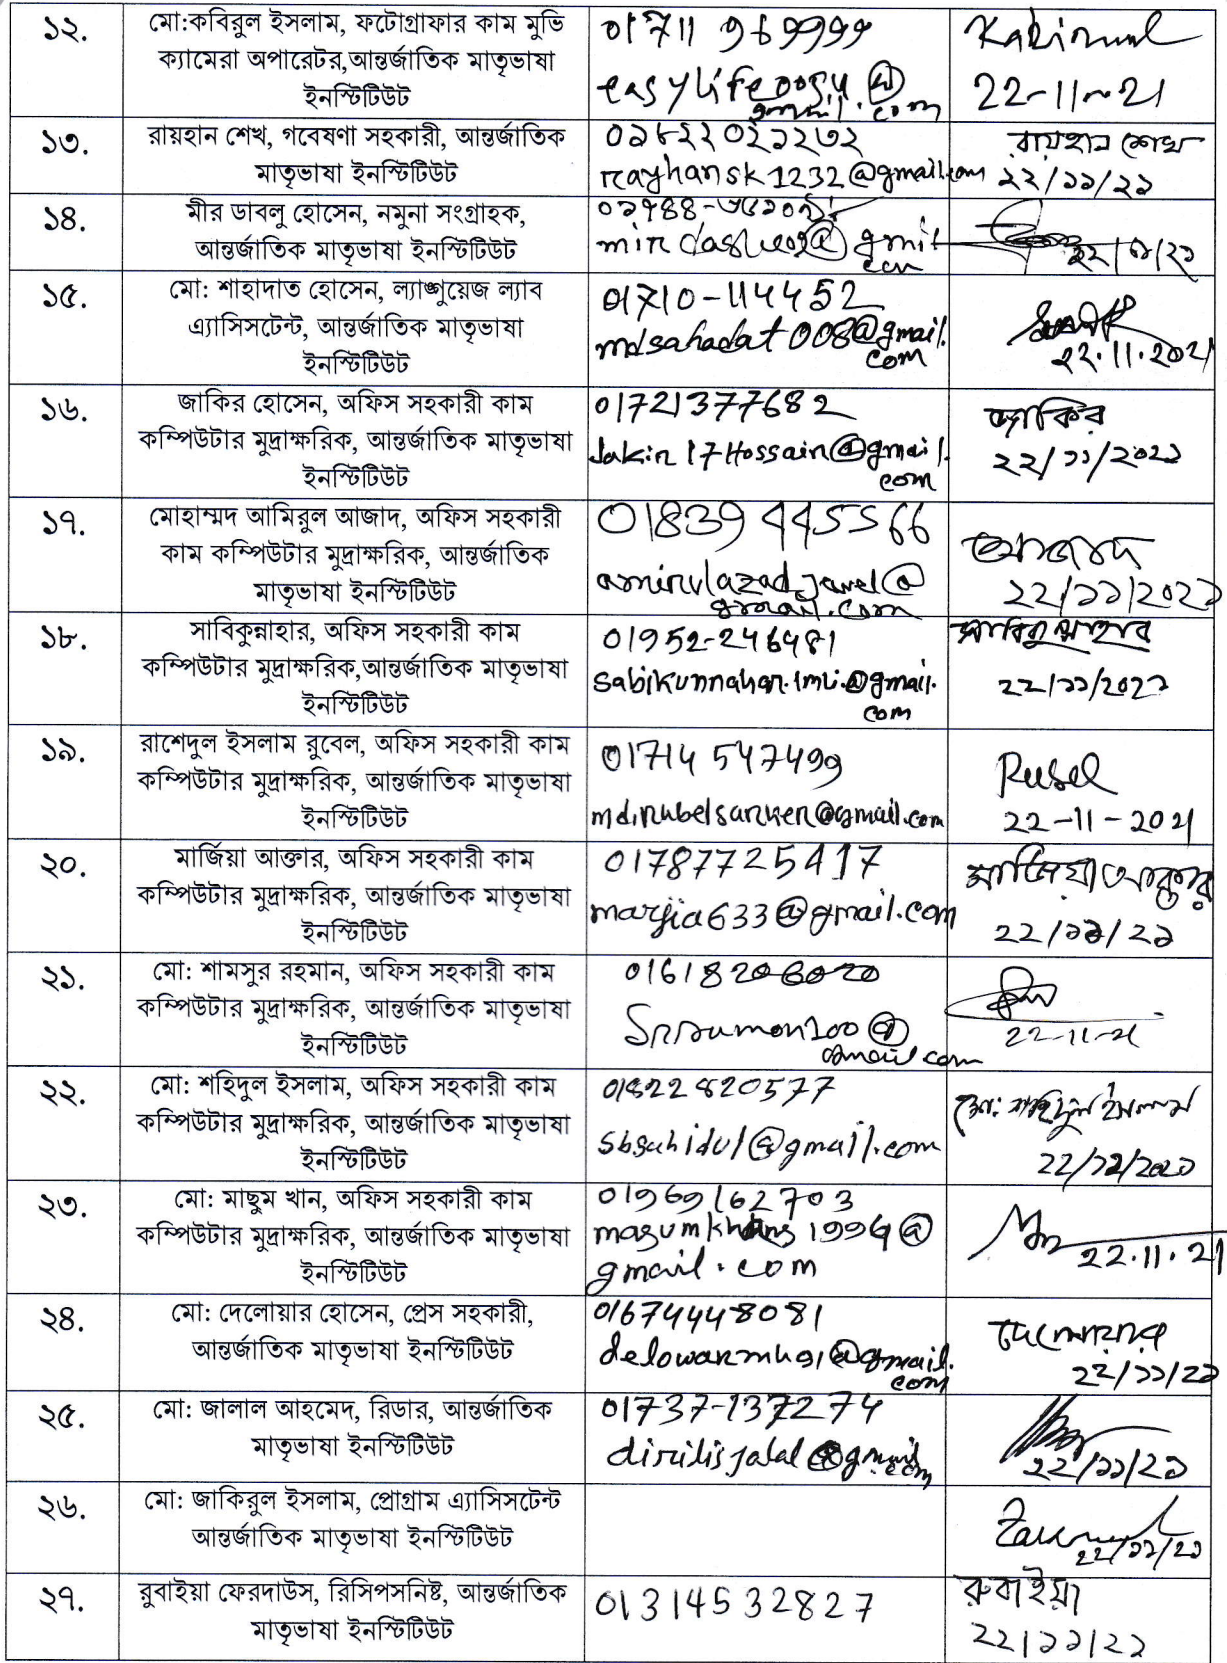 ১২.
মো:কবিরুল ইসলাম, ফটোগ্রাফার কাম মুভি
ক্যামেরা অপারেটর,আন্তর্জাতিক মাতৃভাষা
ইনস্টিটিউট
01711 969999
easylife
gmail.com
Kabirul
22-11-21
১৩.
রায়হান শেখ, গবেষণা সহকারী, আন্তর্জাতিক
মাতৃভাষা ইনস্টিটিউট
rayhansk1232@gmail.com
রায়হান শেখ
২২/১১/২১
১৪.
মীর ডাবলু হোসেন, নমুনা সংগ্রাহক,
আন্তর্জাতিক মাতৃভাষা ইনস্টিটিউট
১৫.
মো: শাহাদাত হোসেন, ল্যাঙ্গুয়েজ ল্যাব
এ্যাসিসটেন্ট, আন্তর্জাতিক মাতৃভাষা
ইনস্টিটিউট
01710-114452
mdsahadat008@gmail.
com
22.11.2021
১৬.
জাকির হোসেন, অফিস সহকারী কাম
কম্পিউটার মুদ্রাক্ষরিক, আন্তর্জাতিক মাতৃভাষা
ইনস্টিটিউট
01721377682
Jakir17Hossain@gmail.
com
জাকির
২২/১১/২০২১
১৭.
মোহাম্মদ আমিরুল আজাদ, অফিস সহকারী
কাম কম্পিউটার মুদ্রাক্ষরিক, আন্তর্জাতিক
মাতৃভাষা ইনস্টিটিউট
01839445566
amirulazad.jewel@
gmail.com
আজাদ
২২/১১/২০২১
১৮.
সাবিকুন্নাহার, অফিস সহকারী কাম
কম্পিউটার মুদ্রাক্ষরিক,আন্তর্জাতিক মাতৃভাষা
ইনস্টিটিউট
01952-246481
sabikunnahar.imli.@gmail.
com
সাবিকুন্নাহার
২২/১১/২০২১
১৯.
রাশেদুল ইসলাম রুবেল, অফিস সহকারী কাম
কম্পিউটার মুদ্রাক্ষরিক, আন্তর্জাতিক মাতৃভাষা
ইনস্টিটিউট
01714547499
md.rubelsarker@gmail.com
Rubel
22-11-2021
২০.
মার্জিয়া আক্তার, অফিস সহকারী কাম
কম্পিউটার মুদ্রাক্ষরিক, আন্তর্জাতিক মাতৃভাষা
ইনস্টিটিউট
01787725417
marjia633@gmail.com
মার্জিয়া আক্তার
২২/১১/২১
২১.
মো: শামসুর রহমান, অফিস সহকারী কাম
কম্পিউটার মুদ্রাক্ষরিক, আন্তর্জাতিক মাতৃভাষা
ইনস্টিটিউট
01618206020
gmail.com
22-11-21
২২.
মো: শহিদুল ইসলাম, অফিস সহকারী কাম
কম্পিউটার মুদ্রাক্ষরিক, আন্তর্জাতিক মাতৃভাষা
ইনস্টিটিউট
01822820577
sbsahidul@gmail.com
মো: শহিদুল ইসলাম
২৩.
মো: মাছুম খান, অফিস সহকারী কাম
কম্পিউটার মুদ্রাক্ষরিক, আন্তর্জাতিক মাতৃভাষা
ইনস্টিটিউট
01969162703
gmail.com
22.11.21
২৪.
মো: দেলোয়ার হোসেন, প্রেস সহকারী,
আন্তর্জাতিক মাতৃভাষা ইনস্টিটিউট
01674448081
delowarmh91@gmail.
com
দেলোয়ার
২২/১১/২১
২৫.
মো: জালাল আহমেদ, রিডার, আন্তর্জাতিক
মাতৃভাষা ইনস্টিটিউট
01737-137274
dirilisjalal@gmail
.com
২২/১১/২১
২৬.
মো: জাকিরুল ইসলাম, প্রোগ্রাম এ্যাসিসটেন্ট
আন্তর্জাতিক মাতৃভাষা ইনস্টিটিউট
২২/১১/২১
২৭.
রুবাইয়া ফেরদাউস, রিসিপসনিষ্ট, আন্তর্জাতিক
মাতৃভাষা ইনস্টিটিউট
01314532827
রুবাইয়া
২২/১১/২১